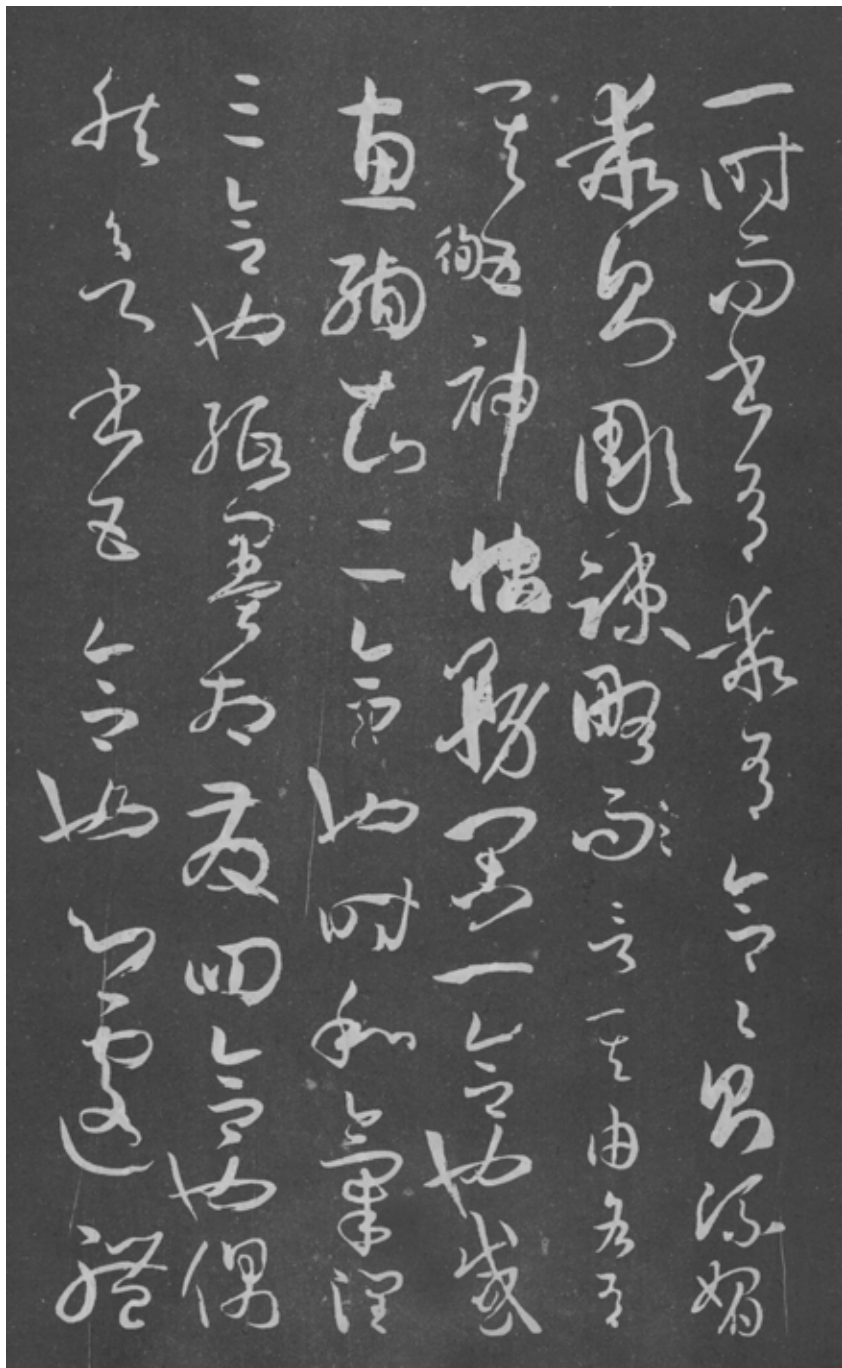 一時而書有乖有合〻則流媚
乖則彫疎略而言其由各有
其五神怡務閑一合也感
徇
惠徇知二合也時和氣潤
三合也紙墨相發四合也偶
然欲書五合也心遽體